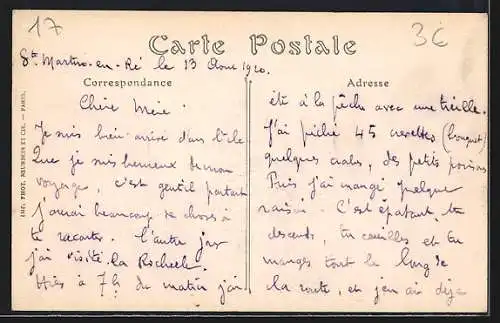 17
3€
Carte Postale
St Martin-en-Ré le 13 Aout 1920.
Correspondance
Adresse
IMP. PHOT. NEURDEIN ET CIE. — PARIS.
Chère Mère
Je suis bien arrivé dans l'île
Que je suis heureux de mon
voyage, c'est gentil partout
j'aurai beaucoup de choses à
te raconter. L'autre jour
j'ai visité La Rochelle.
Hier à 7h du matin j'ai
été à la pêche avec une treille.
J'ai pêché 45 crevettes (bouquet)
quelques crabes, des petits poissons
Puis j'ai mangé quelque
raisin. C'est épatant, tu
descends, tu cueilles et tu
manges tout le long de
la route, et j'en ai déjà